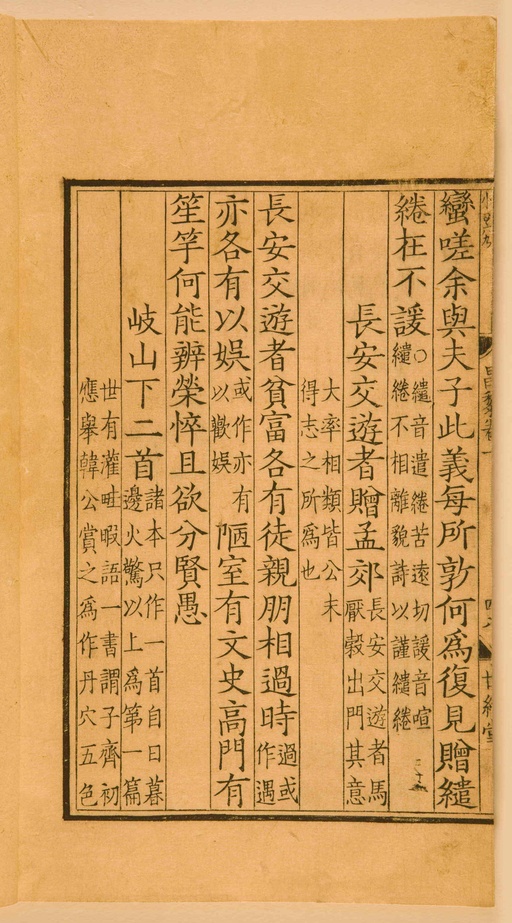 蠻嗟余與夫子此義每所敦何爲復見贈繾
綣在不諼○繾音遣綣苦遠切諼音喧繾綣不相離貌詩以謹繾綣
長安交遊者贈孟郊長安交遊者馬厭穀出門其意
大率相類皆公未得志之所爲也
長安交遊者貧富各有徒親朋相過時過或作遇
亦各有以娛或作亦有以歡娛陋室有文史高門有
笙竽何能辨榮悴且欲分賢愚
岐山下二首諸本只作一首自日暮邊火驚以上爲第一篇
世有灌畦暇語一書謂子齊初應舉韓公賞之爲作丹穴五色
昌黎卷一
世綵堂